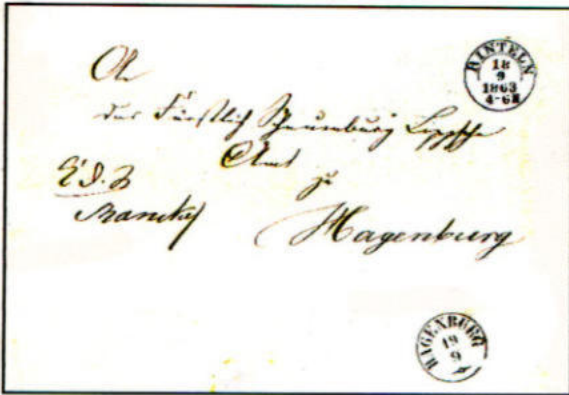 RINTELN
18
9
1863
4-6N
An
das Fürstlich Schaumburg Lippsche
Amt
zu
Hagenburg
HAGENBURG
19
9